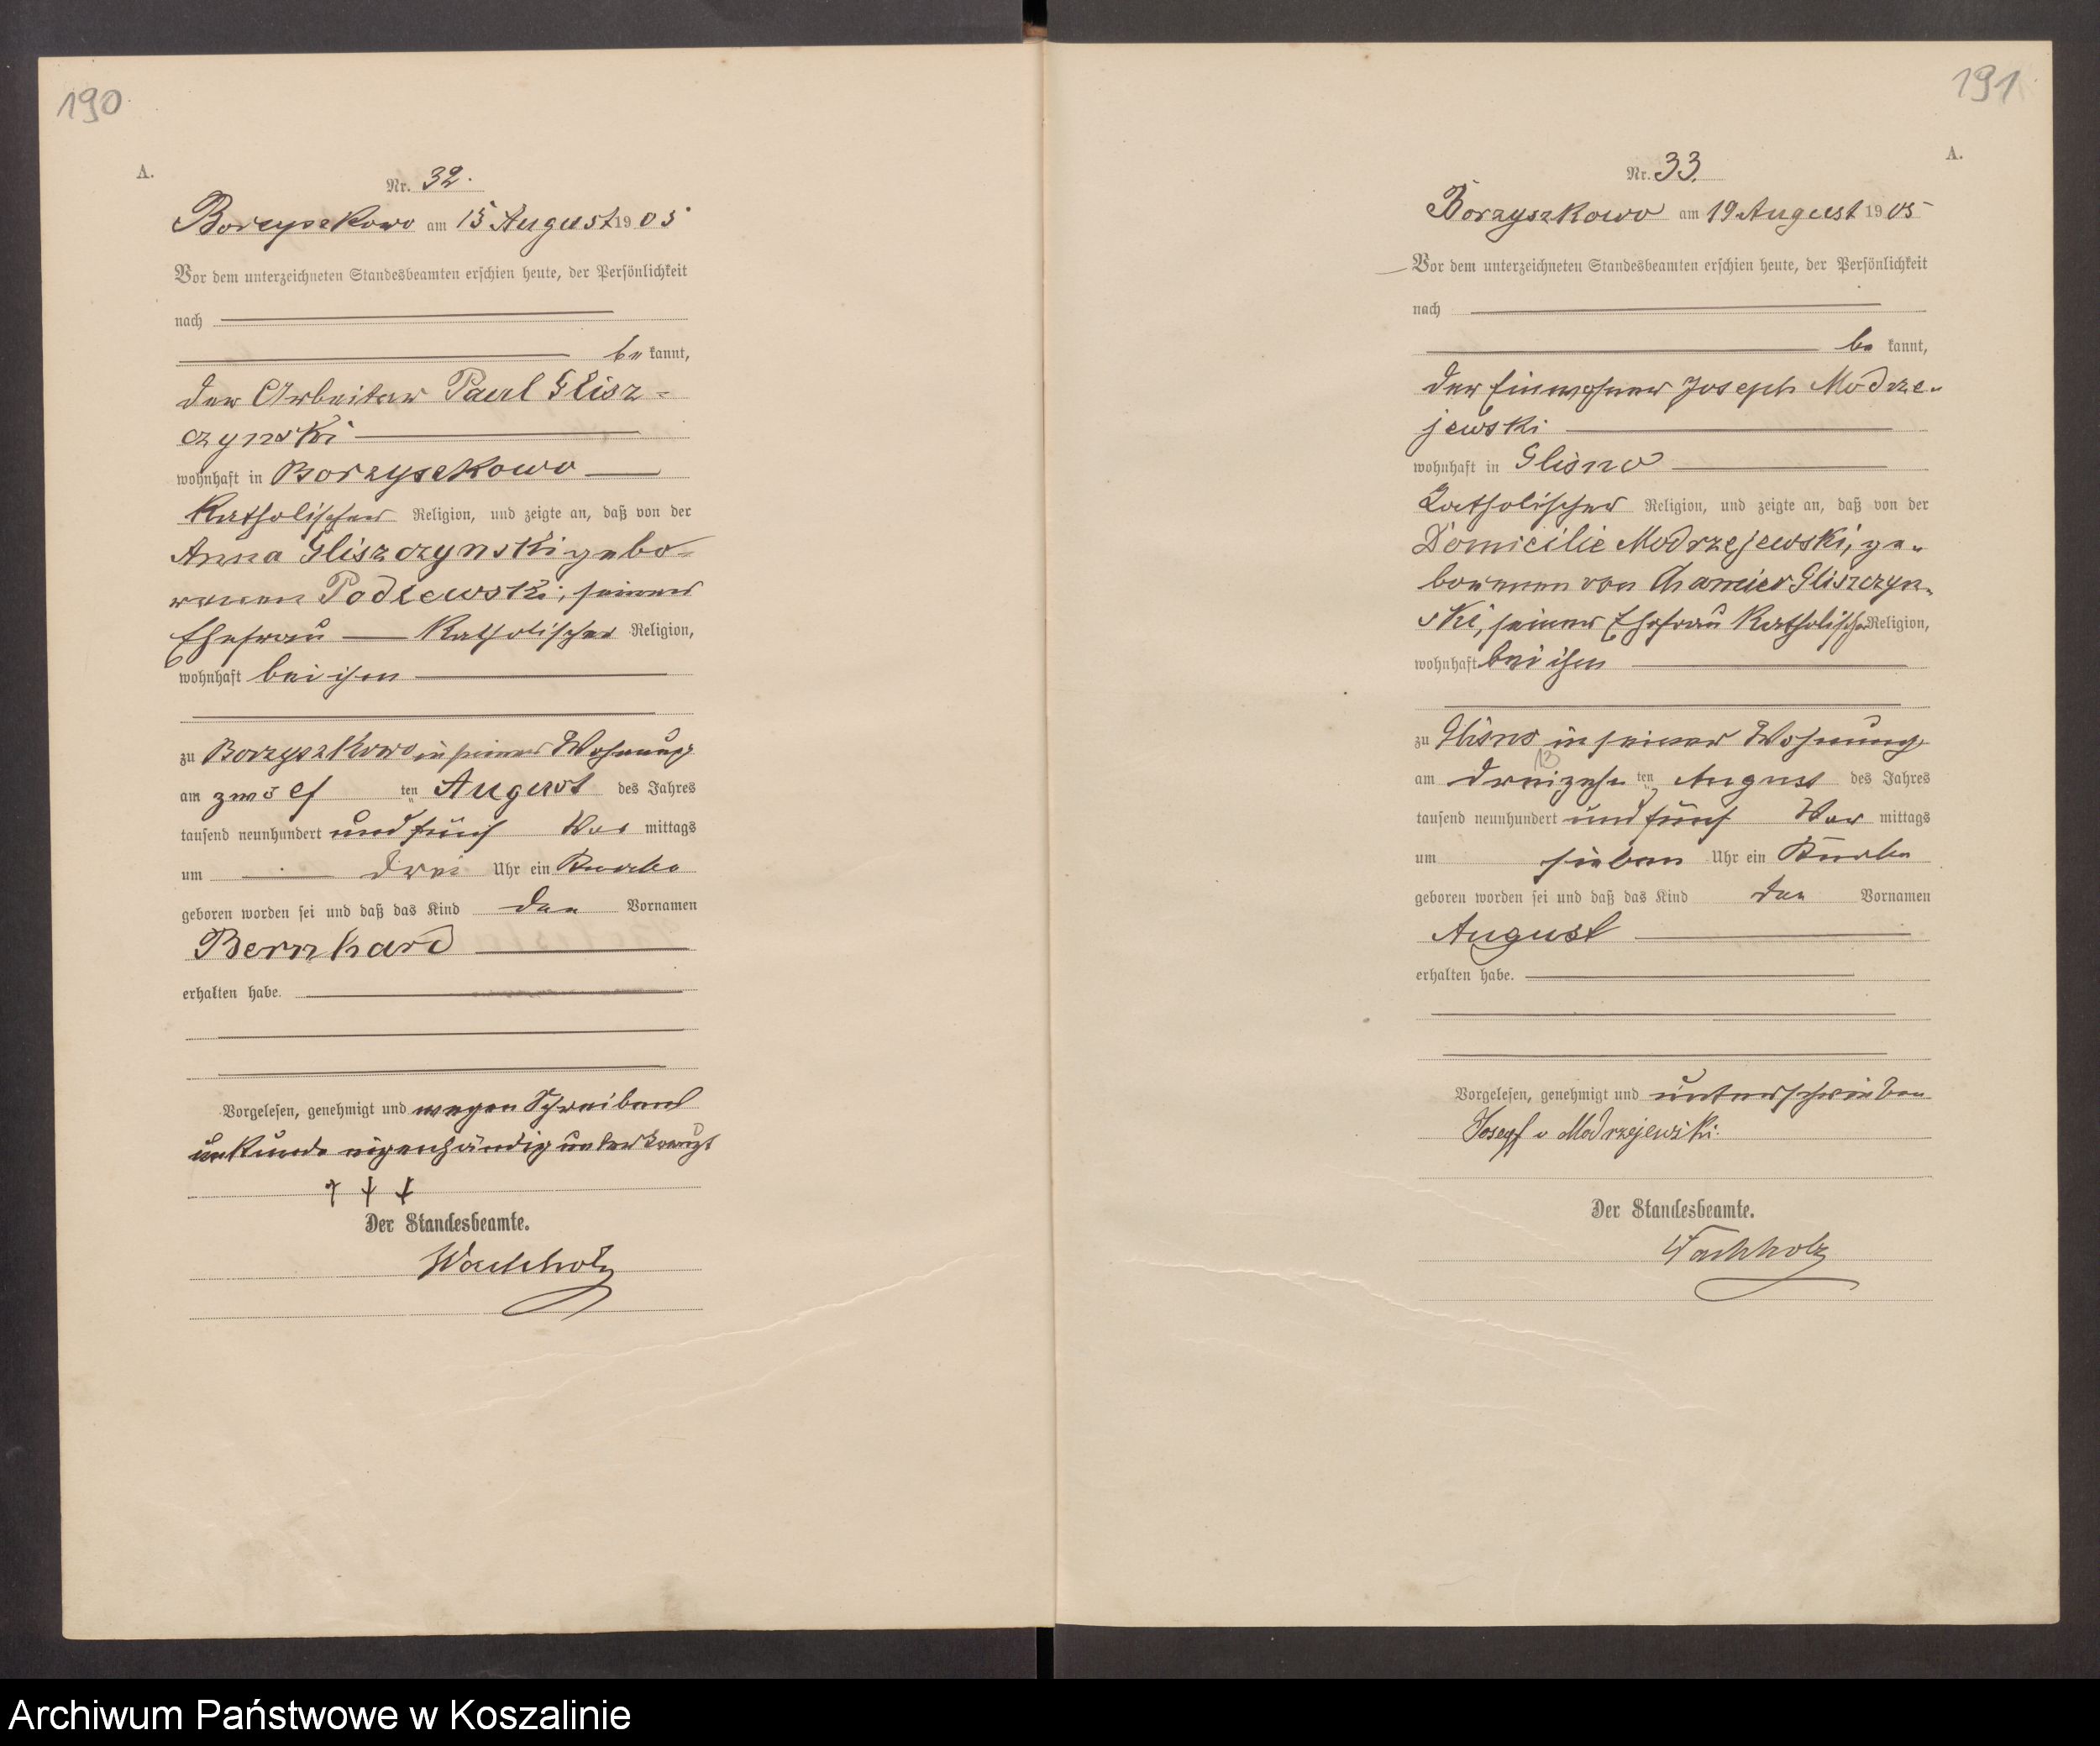 190
A.
Nr. 32.
Borzyszkowo am 15 August 1905
Vor dem unterzeichneten Standesbeamten erschien heute, der Persönlichkeit
nach
be kannt,
der Arbeiter Paul Glisz-
czynski
wohnhaft in Borzyszkowo
Katholischer Religion, und zeigte an, daß von der
Anna Gliszczynski gebo-
renen Podlewski, seiner
Ehefrau Katholischer Religion,
wohnhaft bei ihm
zu Borzyszkowo in seiner Wohnung
am zwölf ten August des Jahres
tausend neunhundert und fünf Vor mittags
um drei Uhr ein Knabe
geboren worden sei und daß das Kind den Vornamen
Bernhard
erhalten habe.
Vorgelesen, genehmigt und wegen Schreibens
unkunde eigenhändig unterkreuzt
† † †
Der Standesbeamte.
Wachholz
191
A.
Nr. 33.
Borzyszkowo am 19 August 1905
Vor dem unterzeichneten Standesbeamten erschien heute, der Persönlichkeit
nach
be kannt,
der Einwohner Joseph Modrze-
jewski
wohnhaft in Glisno
Katholischer Religion, und zeigte an, daß von der
Domicilie Modrzejewski, ge-
borenen von Chamier Gliszczyn-
ski, seiner Ehefrau Katholischer Religion,
wohnhaft bei ihm
zu Glisno in seiner Wohnung
13
am dreizehn ten August des Jahres
tausend neunhundert und fünf Vor mittags
um sieben Uhr ein Knabe
geboren worden sei und daß das Kind den Vornamen
August
erhalten habe.
Vorgelesen, genehmigt und unterschrieben
Josepf v Modrzejewski.
Der Standesbeamte.
Wachholz
Archiwum Państwowe w Koszalinie